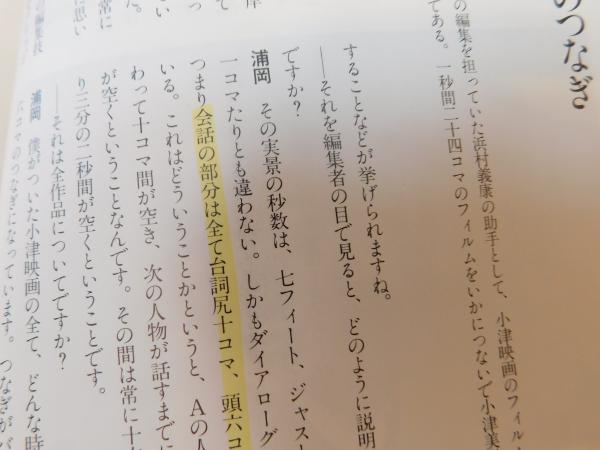 のつなぎ
の編集を担っていた浜村義康の助手として、小津映画のフィル
である。一秒間二十四コマのフィルムをいかにつないで小津美
することなどが挙げられますね。
――それを編集者の目で見ると、どのように説明
ですか?
浦岡 その実景の秒数は、七フィート、ジャスト
一コマたりとも違わない。しかもダイアローグ
つまり会話の部分は全て台詞尻十コマ、頭六コ
いる。これはどういうことかというと、Aの人
わって十コマ間が空き、次の人物が話すまでに
が空くということなんです。その間は常に十
り三分の二秒間が空くということです。
――それは全作品についてですか?
浦岡 僕がついた小津映画の全て、どんな時
六コマのつなぎになっています。つなぎが
の編集技
常に
に思い
た。